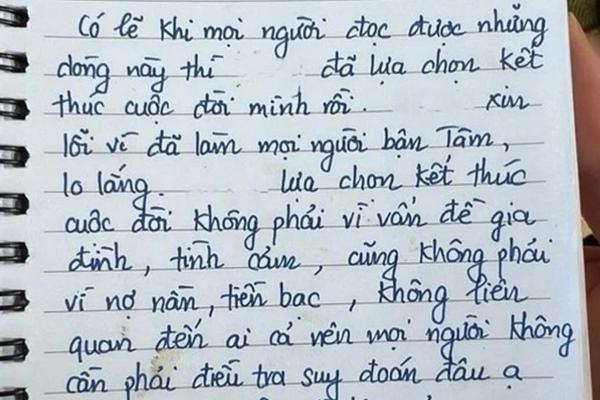 Có lẽ khi mọi người đọc được những
dòng này thì đã lựa chọn kết
thúc cuộc đời mình rồi. xin
lỗi vì đã làm mọi người bận Tâm,
lo lắng. lựa chọn kết thúc
cuộc đời không phải vì vấn đề gia
đình, tình cảm, cũng không phải
vì nợ nần, tiền bạc, không liên
quan đến ai cả nên mọi người không
cần phải điều tra suy đoán đâu ạ